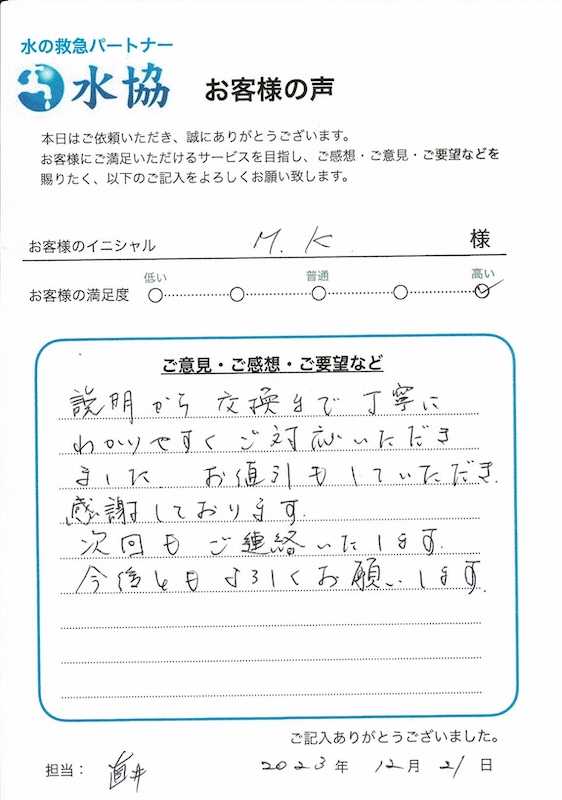 水の救急パートナー
水協 お客様の声
本日はご依頼いただき、誠にありがとうございます。
お客様にご満足いただけるサービスを目指し、ご感想・ご意見・ご要望などを
賜りたく、以下のご記入をよろしくお願い致します。
お客様のイニシャル M.K 様
低い 普通 高い
お客様の満足度
ご意見・ご感想・ご要望など
説明から交換まで丁寧に
わかりやすくご対応いただき
ました。お値引もしていただき、
感謝しております。
次回もご連絡いたします。
今後ともよろしくお願いします。
ご記入ありがとうございました。
担当： 直井 2023年 12月 21日